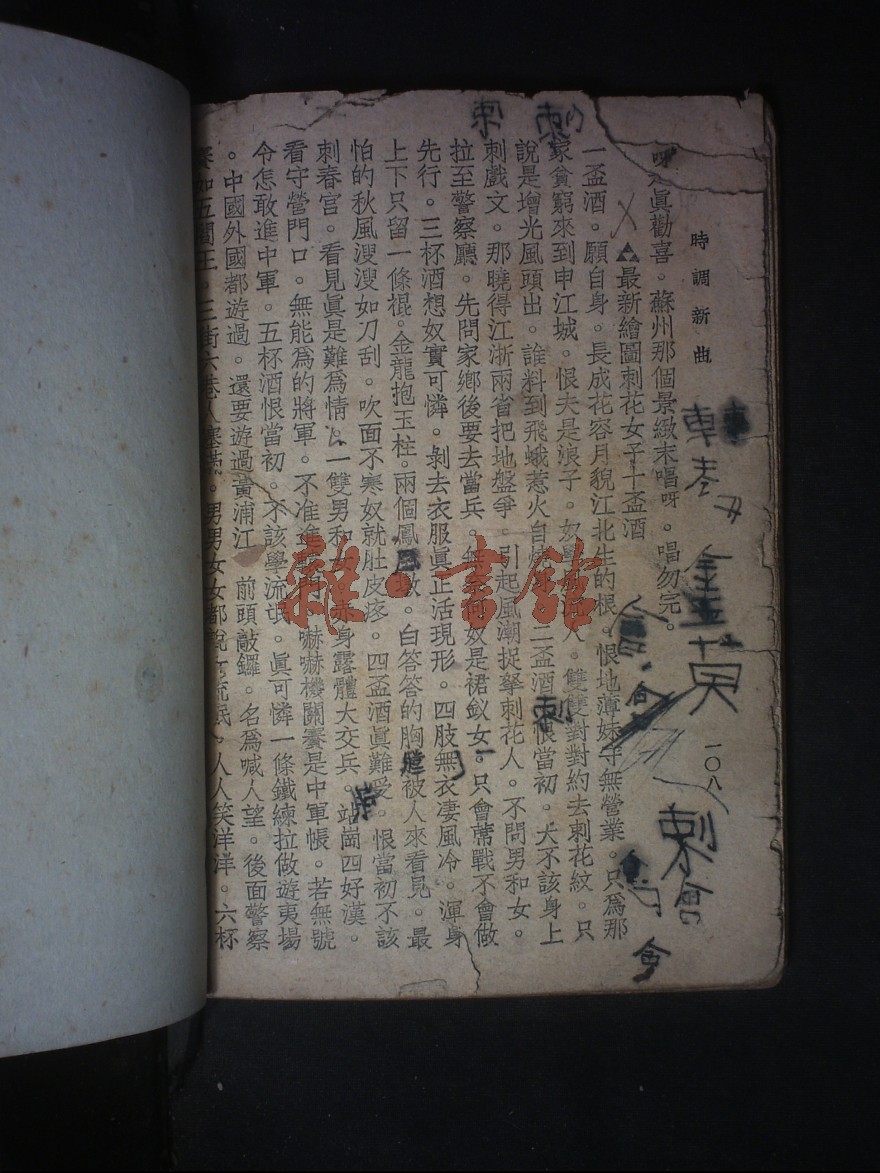 時調新曲
一〇八
眞勸喜。蘇州那個景緻未唱呀。唱勿完。
▲最新繪圖刺花女子十盃酒
一盃酒。願自身。長成花容月貌江北生的根。恨地薄妹守無營業。只爲那
家貧窮來到申江城。恨夫是浪子。奴 人。雙雙對對約去刺花紋。只
說是增光風頭出。誰料到飛蛾惹火自燒 二盃酒 恨當初。大不該身上
刺戲文。那曉得江浙兩省把地盤爭。引起風潮捉拏刺花人。不問男和女。
拉至警察廳。先問家鄉後要去當兵。 奴是裙釵女。只會蓆戰不會做
先行。三杯酒想奴實可憐。剝去衣服眞正活現形。四肢無衣淒風冷。渾身
上下只留一條裩。金龍抱玉柱。兩個鳳 。白答答的胸 被人來看見。最
怕的秋風溲溲如刀刮。吹面不寒奴就肚皮疼。四盃酒眞難受。恨當初不該
刺春宮。看見眞是難爲情。一雙男和女 赤身露體大交兵。站崗四好漢。
看守營門口。無能爲的將軍。不准進 嚇嚇機關賽是中軍帳。若無號
令怎敢進中軍。五杯酒恨當初。不該學流氓。眞可憐一條鐵練拉做遊夷場
。中國外國都遊過。還要遊過黃浦江 前頭敲鑼。名爲喊人望。後面警察
如五閻王。三街六巷人塞滿。男男女女都說女流氓。人人笑洋洋。六杯
刺
刺
金英
刺會
會
刺
雜·書館